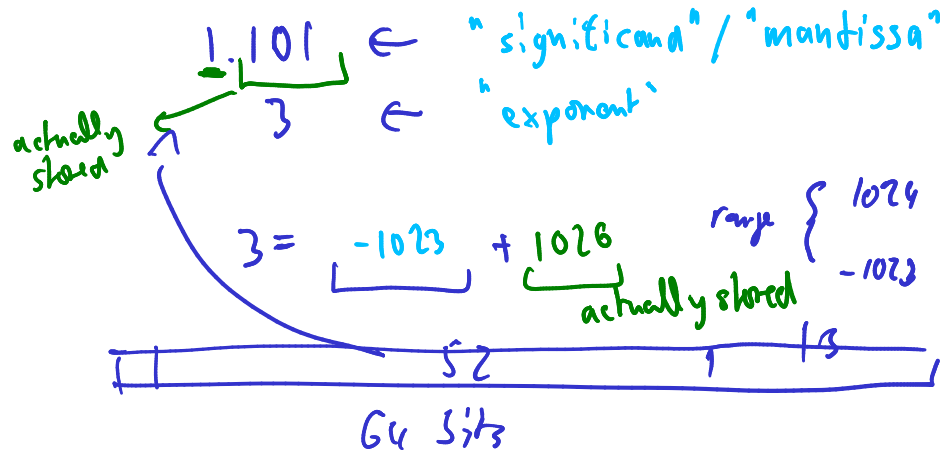 1.101 ← "significand" / "mantissa"
3 ← "exponent"
actually
stored
3 = -1023 + 1026
actually stored
range { 1024
-1023
52
64 bits